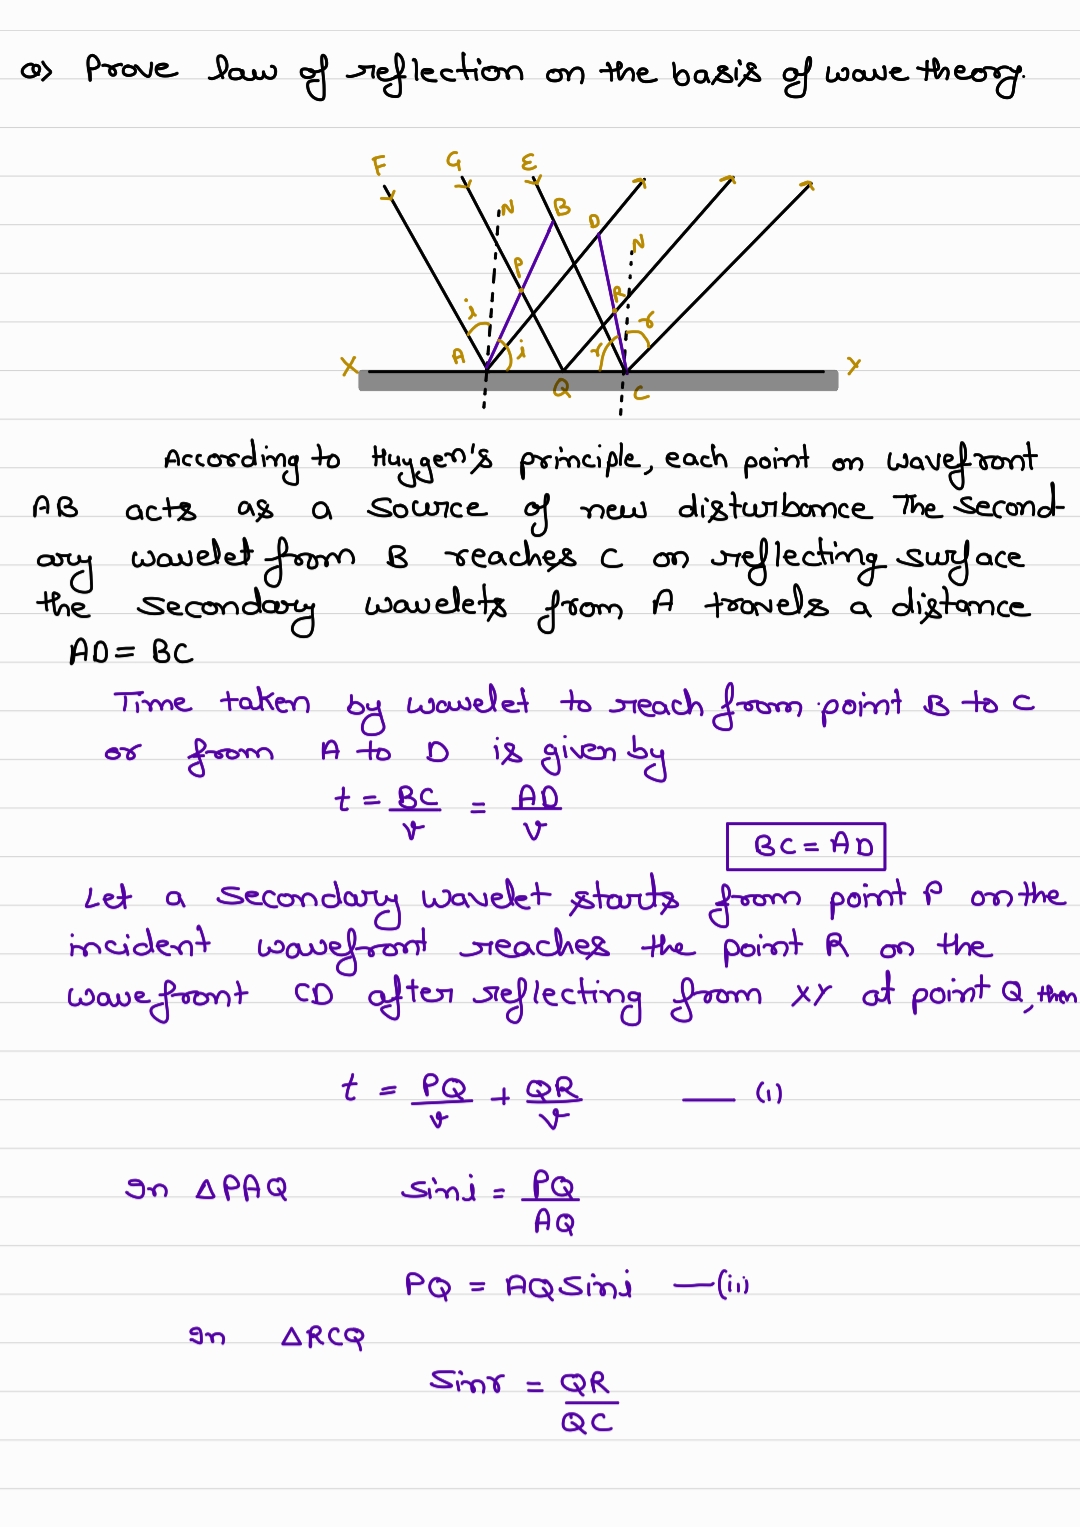 Q) Prove law of reflection on the basis of wave theory.
F G E
N B D N
P R
i i r r
X A Q C Y
According to Huygen's principle, each point on wavefront
AB acts as a source of new disturbance The second-
ary wavelet from B reaches C on reflecting surface
the secondary wavelets from A travels a distance
AD = BC
Time taken by wavelet to reach from point B to C
or from A to D is given by
t = BC/v = AD/v
BC = AD
Let a secondary wavelet starts from point P on the
incident wavefront reaches the point R on the
wavefront CD after reflecting from XY at point Q, then
t = PQ/v + QR/v — (i)
In △PAQ sin i = PQ/AQ
PQ = AQ Sin i — (ii)
In △RCQ
Sin r = QR/QC